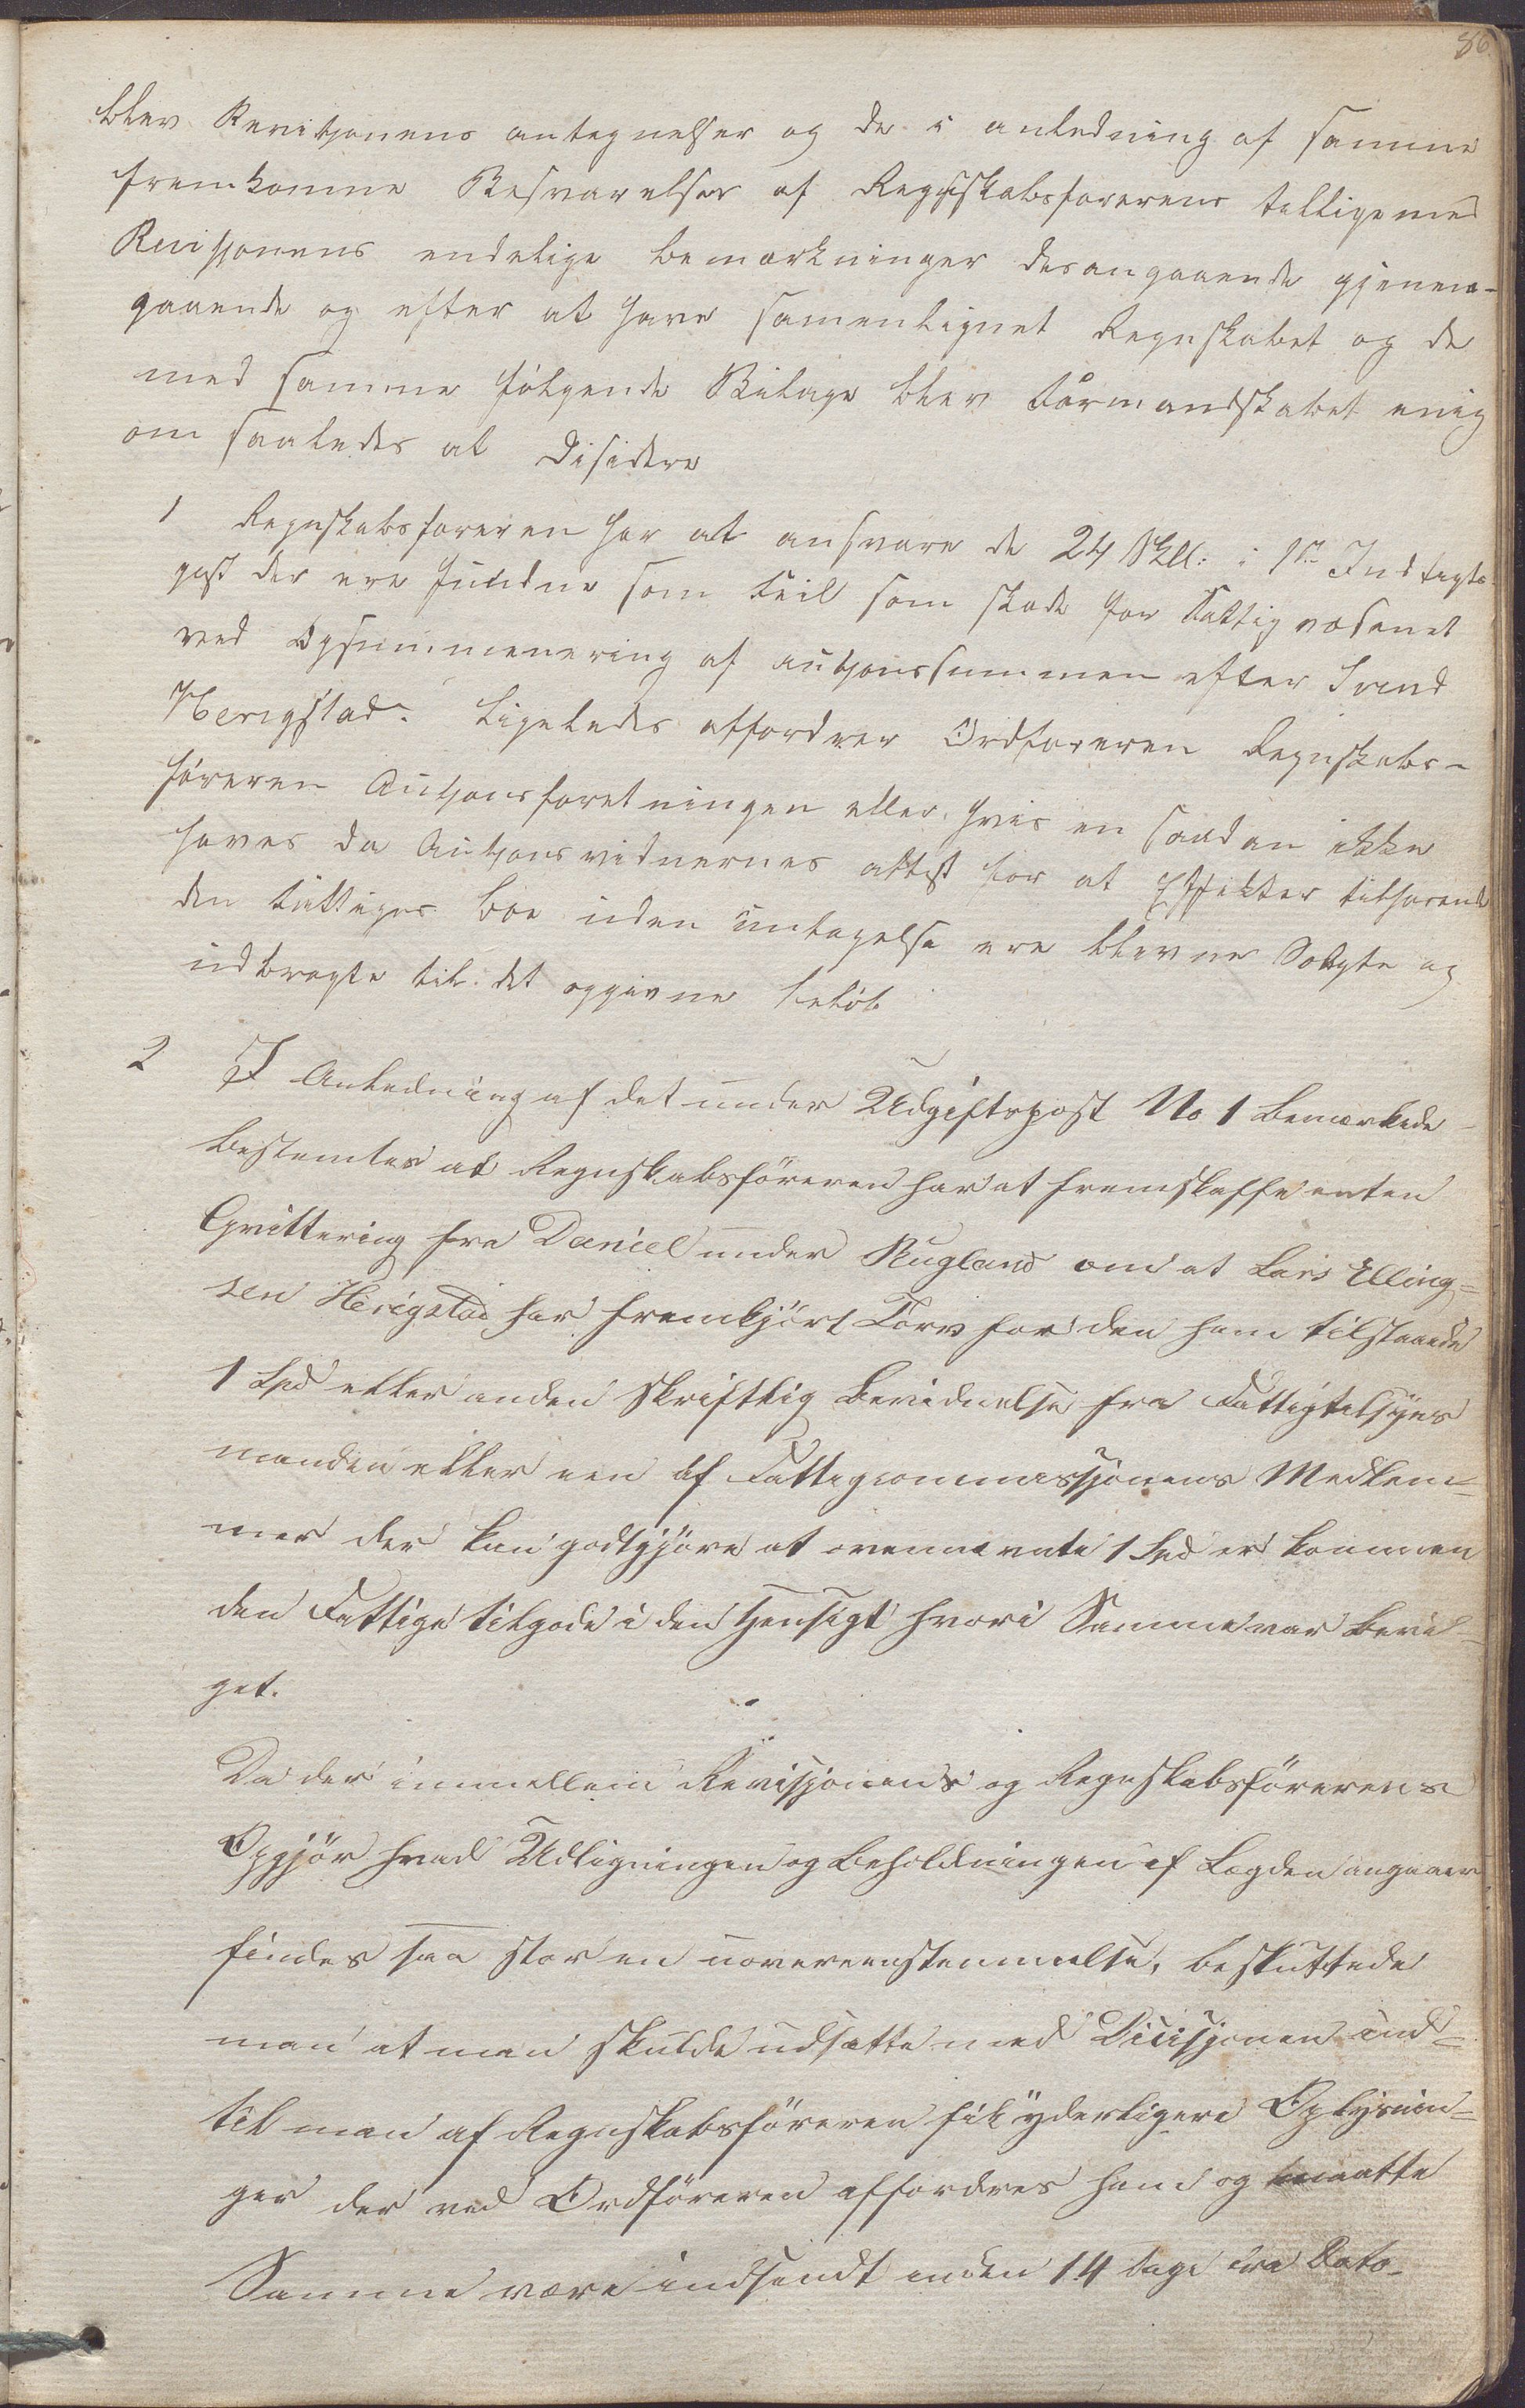 86
blev Revitjonens antegnelser og de i anledning af samme
fremkomne Besvarelser af Regnskabsførerens telligemed
Revisjonens endelige bemærkninger desangaaende gjenem-
gaaende og efter at have samenlignet Regnskabet og de
med samme følgende Bilage blev Formandskabet enig
om saaledes at Disidere
1 Regnskabsføreren har at ansvare de 24 Skll: i 1ste Indtegts
post der ere fundne som Feil som skade for Fattigvæsenet
ved Opsummenering af autjonssummen efter Svend
Herigstad. Ligeledes affordrer Ordføreren Regnskabs-
føreren Autjonsforretningen eller hvis en saadan ikke
haves da Autjonsvidnernes attest for at Effekter tilhørende
den fattiges boe uden untagelse ere blevne Solgte og
udbragte til det opgivne beløb
2 I Anledning af det under Udgiftspost No 1 bemærkede
bestemtes at Regnskabsføreren har at fremskaffe enten
Qvittering fra Daniel under Rugland om at Lars Elling=
sen Herigstad har fremkjört Törv for den ham tilstaaede
1 Spd eller anden skriftlig bevidnelse fra Fattigtilsyns
manden eller een af Fattigcommissjonens Medlem=
mer der kan godtgjøre at ovennævnte 1 Spd er kommen
den Fattige tilgode i den Hensigt hvori Samme var bevil-
get.
Da der immellem Revisjonens og Regnskabsförerens
Opgjör hvad Udligningen og beholdningen af Lægden angaaer
findes saa stor en uovereenstemmelse, besluttede
man at man skulde udsætte med Dicisjonen ind=
til man af Regnskabsföreren fik yderligere Oplysnin=
ger der ved Ordföreren affordres ham og maatte
Samme være indsendt inden 14 dage fra Dato.